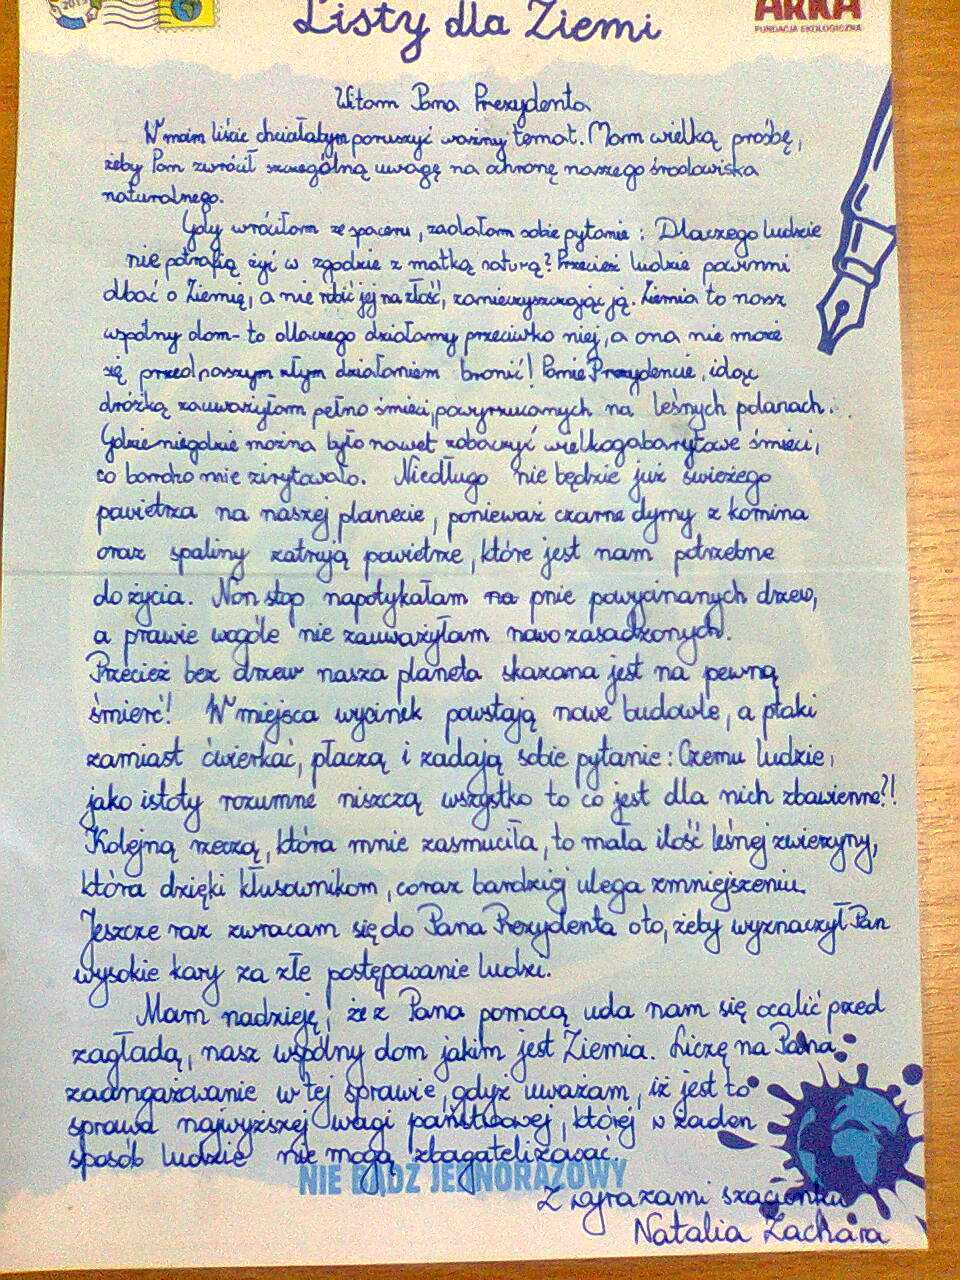 2019
ARKA
FUNDACJA EKOLOGICZNA
Listy dla Ziemi
Witam Pana Prezydenta
W moim liście chciałabym poruszyć ważny temat. Mam wielką prośbę,
żeby Pan zwrócił szczególną uwagę na ochronę naszego środowiska
naturalnego.
Gdy wróciłam ze spaceru, zadałam sobie pytanie: Dlaczego ludzie
nie potrafią żyć w zgodzie z matką naturą? Przecież ludzie powinni
dbać o Ziemię, a nie robić jej na złość, zanieczyszczając ją. Ziemia to nasz
wspólny dom- to dlaczego działamy przeciwko niej, a ona nie może
się przed naszym złym działaniem bronić! Panie Prezydencie, idąc
dróżką zauważyłam pełno śmieci, powyrzucanych na leśnych polanach.
Gdzie niegdzie można było nawet zobaczyć wielkogabarytowe śmieci,
co bardzo mnie zirytowało. Niedługo nie będzie już świeżego
powietrza na naszej planecie, ponieważ czarne dymy z komina
oraz spaliny zatrują powietrze, które jest nam potrzebne
do życia. Non stop napotykałam na pnie powycinanych drzew,
a prawie wogóle nie zauważyłam nowo zasadzonych.
Przecież bez drzew nasza planeta skazana jest na pewną
śmierć! W miejsca wycinek powstają nowe budowle, a ptaki
zamiast ćwierkać, płaczą i zadają sobie pytanie: Czemu ludzie,
jako istoty rozumne niszczą wszystko to co jest dla nich zbawienne?!
Kolejną rzeczą, która mnie zasmuciła, to mała ilość leśnej zwierzyny,
która dzięki kłusownikom, coraz bardziej ulega zmniejszeniu.
Jeszcze raz zwracam się do Pana Prezydenta oto, żeby wyznaczył Pan
wysokie kary za złe postępowanie ludzi.
Mam nadzieję, że z Pana pomocą uda nam się ocalić przed
zagładą, nasz wspólny dom jakim jest Ziemia. Liczę na Pana
zaangażowanie w tej sprawie, gdyż uważam, iż jest to
sprawa najwyższej wagi państwowej, której w żaden
sposób ludzie nie mogą zbagatelizować.
NIE BĄDŹ JEDNORAZOWY
Z wyrazami szacunku
Natalia Zachara